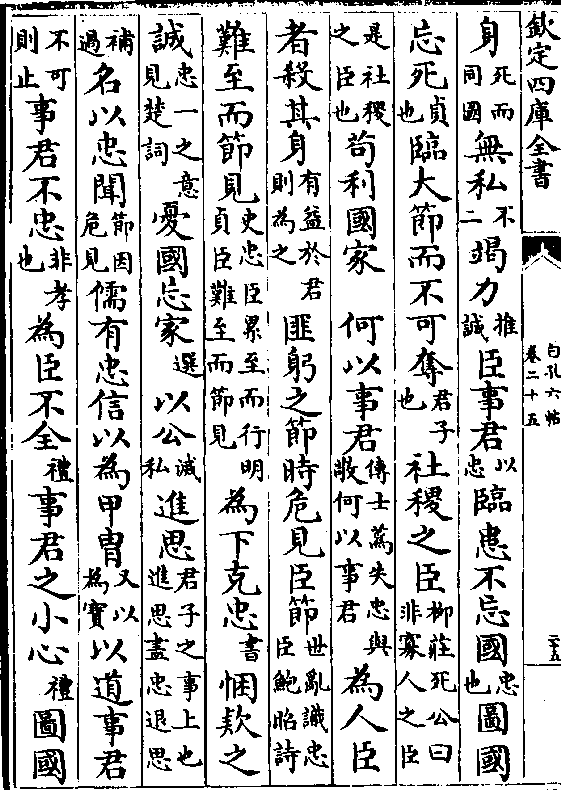 欽定四庫全書
白孔六帖
卷二十五
二十五
身死而同國無私不二竭力推誠臣事君以忠臨患不忘國忠也圖國
忘死貞也臨大節而不可奪君子也社稷之臣柳莊死公曰非寡人之臣
是社稷之臣也苟利國家 何以事君傳士蒍失忠與敬何以事君為人臣
者殺其身有益於君則為之 匪躬之節時危見臣節世亂識忠臣鮑昭詩
難至而節見史忠臣累至而行明貞臣難至而節見為下克忠書悃欵之
誠忠一之意見楚詞憂國忘家選以公滅私進思君子之事上也進思盡忠退思
補過名以忠聞節因危見儒有忠信以為甲胄又以為寳以道事君
不可則止事君不忠非孝也為臣不全禮事君之小心禮圖國